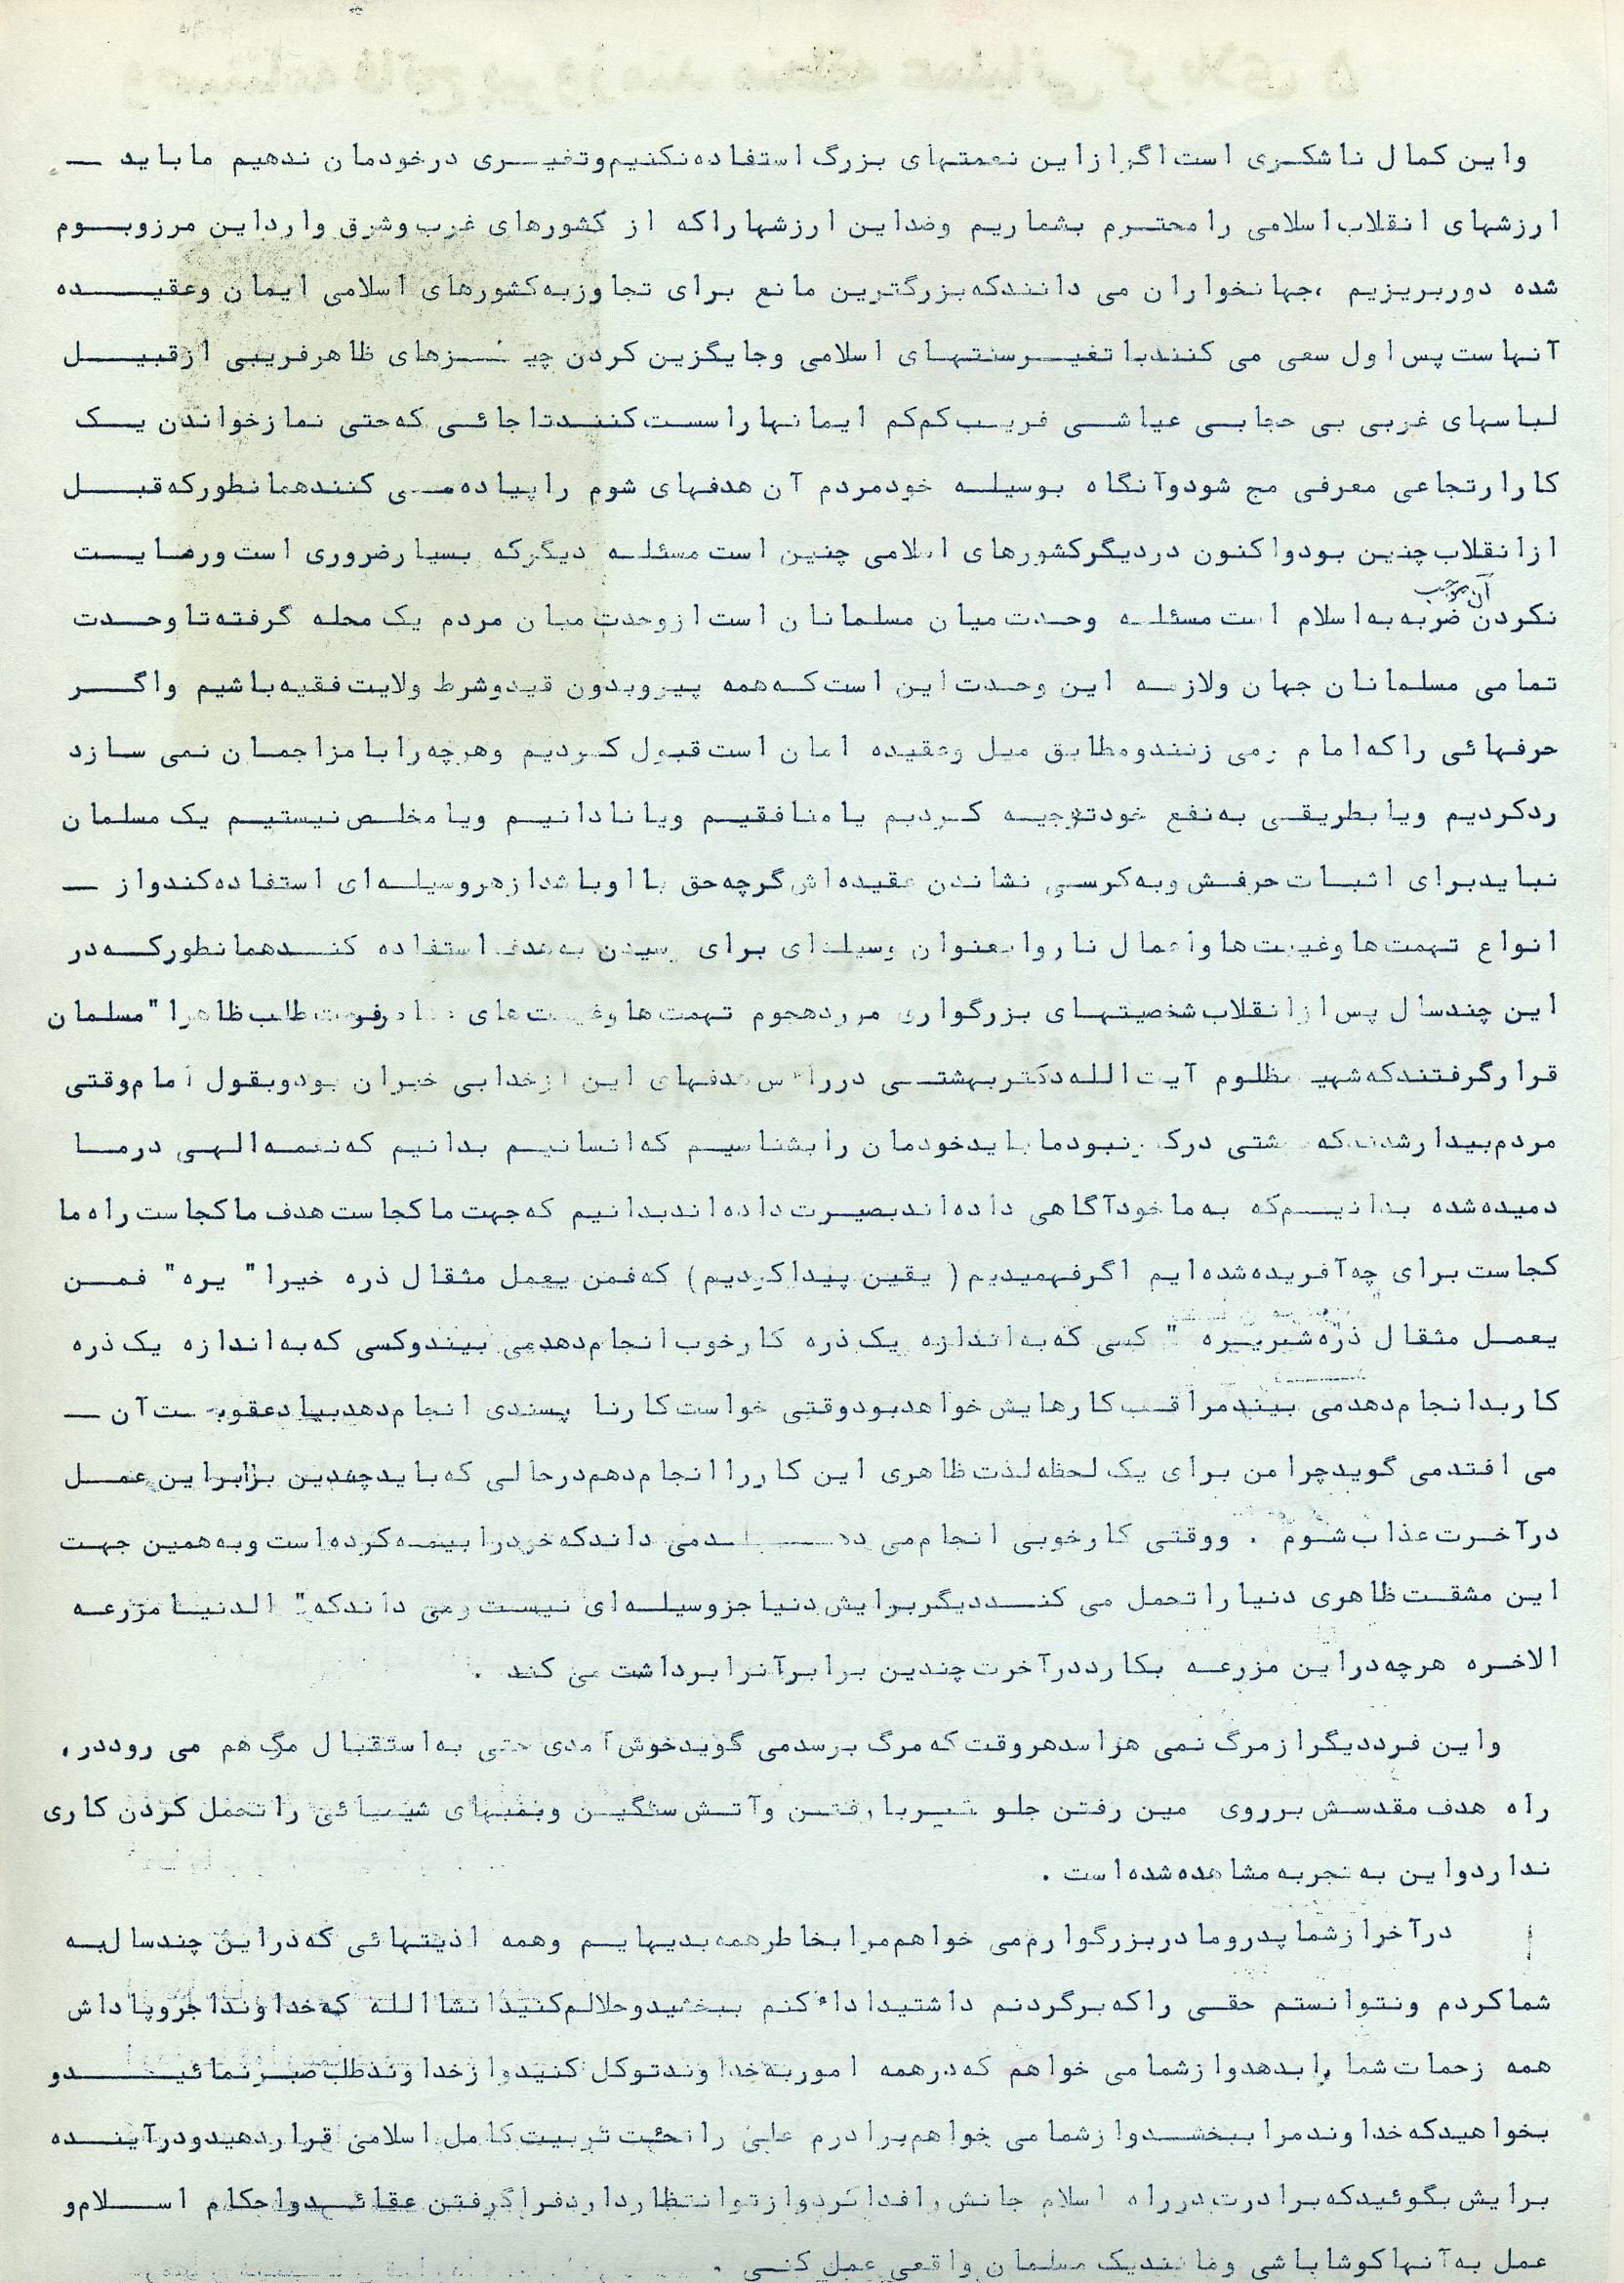 واین کمال ناشکری است اگر ازاین نعمتهای بزرگ استفاده نکنیم وتغییری درخودمان ندهیم ما باید ــ
ارزشهای انقلاب اسلامی را محترم بشماریم وضد این ارزشها راکه از کشورهای غرب وشرق وارد این مرزوبوم
شده دوربریزیم ،جهانخواران می دانندکه بزرگترین مانع برای تجاوزبه کشورهای اسلامی ایمان وعقیده
آنهاست پس اول سعی می کنندبا تغییرسنتهای اسلامی وجایگزین کردن چیزهای ظاهرفریبی ازقبیل
لباسهای غربی بی حجابی عیاشی فریب کم کم ایمانها راسست کنندتا جائی که حتی نمازخواندن یک
کارارتجاعی معرفی مج شودوآنگاه بوسیله خودمردم آن هدفهای شوم راپیاده می کنندهمانطورکه قبل
ازانقلاب چنین بودواکنون دردیگرکشورهای اسلامی چنین است مسئله دیگرکه بسیارضروری است ورعایت
نکردن آن موجب ضربه به اسلام است مسئله وحدت میان مسلمانان است ازوحدت میان مردم یک محله گرفته تا وحدت
تمامی مسلمانان جهان ولازمه این وحدت این است که همه پیروبدون قیدوشرط ولایت فقیه باشیم واگر
حرفهائی راکه امام می زنندومطابق میل وعقیده امان است قبول کردیم وهرچه را با مزاجمان نمی سازد
ردکردیم ویا بطریقی به نفع خودتوجیه کردیم یا منافقیم ویا نادانیم ویا مخلص نیستیم یک مسلمان
نبایدبرای اثبات حرفش وبه کرسی نشاندن عقیده اش گرچه حق با اوباشدازهروسیله ای استفاده کندواز ــ
انواع تهمت ها وغیبت ها واعمال ناروا بعنوان وسیله ای برای رسیدن به هدف استفاده کندهمانطورکه در
این چندسال پس ازانقلاب شخصیتهای بزرگواری موردهجوم تهمت ها وغیبت های فرصت طلب ظاهرا" مسلمان
قرارگرفتندکه شهید مظلوم آیت الله دکتربهشتی درراس هدفهای این ازخدابی خبران بودوبقول امام وقتی
مردم بیدارشدندکه بهشتی درک نبودما بایدخودمان رابشناسیم که انسانیم بدانیم که نغمه الهی درما
دمیده شده بدانیم که به ما خودآگاهی داده اندبصیرت داده اندبدانیم که جهت ما کجاست هدف ما کجاست راه ما
کجاست برای چه آفریده شده ایم اگرفهمیدیم ( یقین پیداکردیم) که فمن یعمل مثقال ذره خیرا" یره" فمن
یعمل مثقال ذره شریره " کسی که به اندازه یک ذره کارخوب انجام دهدمی بیندوکسی که به اندازه یک ذره
کاربدانجام دهدمی بیندمراقب کارهایش خواهدبودوقتی خواست کارنا پسندی انجام دهدبیادعقوبت آن ــ
می افتدمی گویدچرا من برای یک لحظه لذت ظاهری این کاررا انجام دهم درحالی که بایدچندین برابراین عمل
درآخرت عذاب شوم . ووقتی کارخوبی انجام می دهد می داندکه خودرا بیمه کرده است وبه همین جهت
این مشقت ظاهری دنیا راتحمل می کنددیگربرایش دنیا جزوسیله ای نیست ومی داندکه " الدنیا مزرعه
الاخره هرچه دراین مزرعه بکارددرآخرت چندین برابرآنرا برداشت می کند .
واین فرددیگرازمرگ نمی هراسدهروقت که مرگ برسدمی گویدخوش آمدی حتی به استقبال مرگ هم می روددر
راه هدف مقدسش برروی مین رفتن جلو تیربار رفتن وآتش سنگین وبمبهای شیمیائی راتحمل کردن کاری
نداردواین به تجربه مشاهده شده است .
درآخرازشما پدروما دربزرگوارم می خواهم مرا بخاطرهمه بدیهایم وهمه اذیتهائی که دراین چندسال به
شما کردم ونتوانستم حقی راکه برگردنم داشتیداداء کنم ببخشیدوحلالم کنیدانشاالله که خداونداجروپاداش
همه زحمات شما را بدهدوازشما می خواهم که درهمه اموربه خداوندتوکل کنیدوازخداوندطلب صبرنمائیدو
بخواهیدکه خداوندمرا ببخشدوازشما می خواهم برادرم علی راتحت تربیت کامل اسلامی قراردهیدودرآینده
برایش بگوئیدکه برادرت درراه اسلام جانش رافداکردوازتوانتظارداردفراگرفتن عقائدواحکام اسلام و
عمل به آنها کوشا باشی وما نندیک مسلمان واقعی عمل کنی .